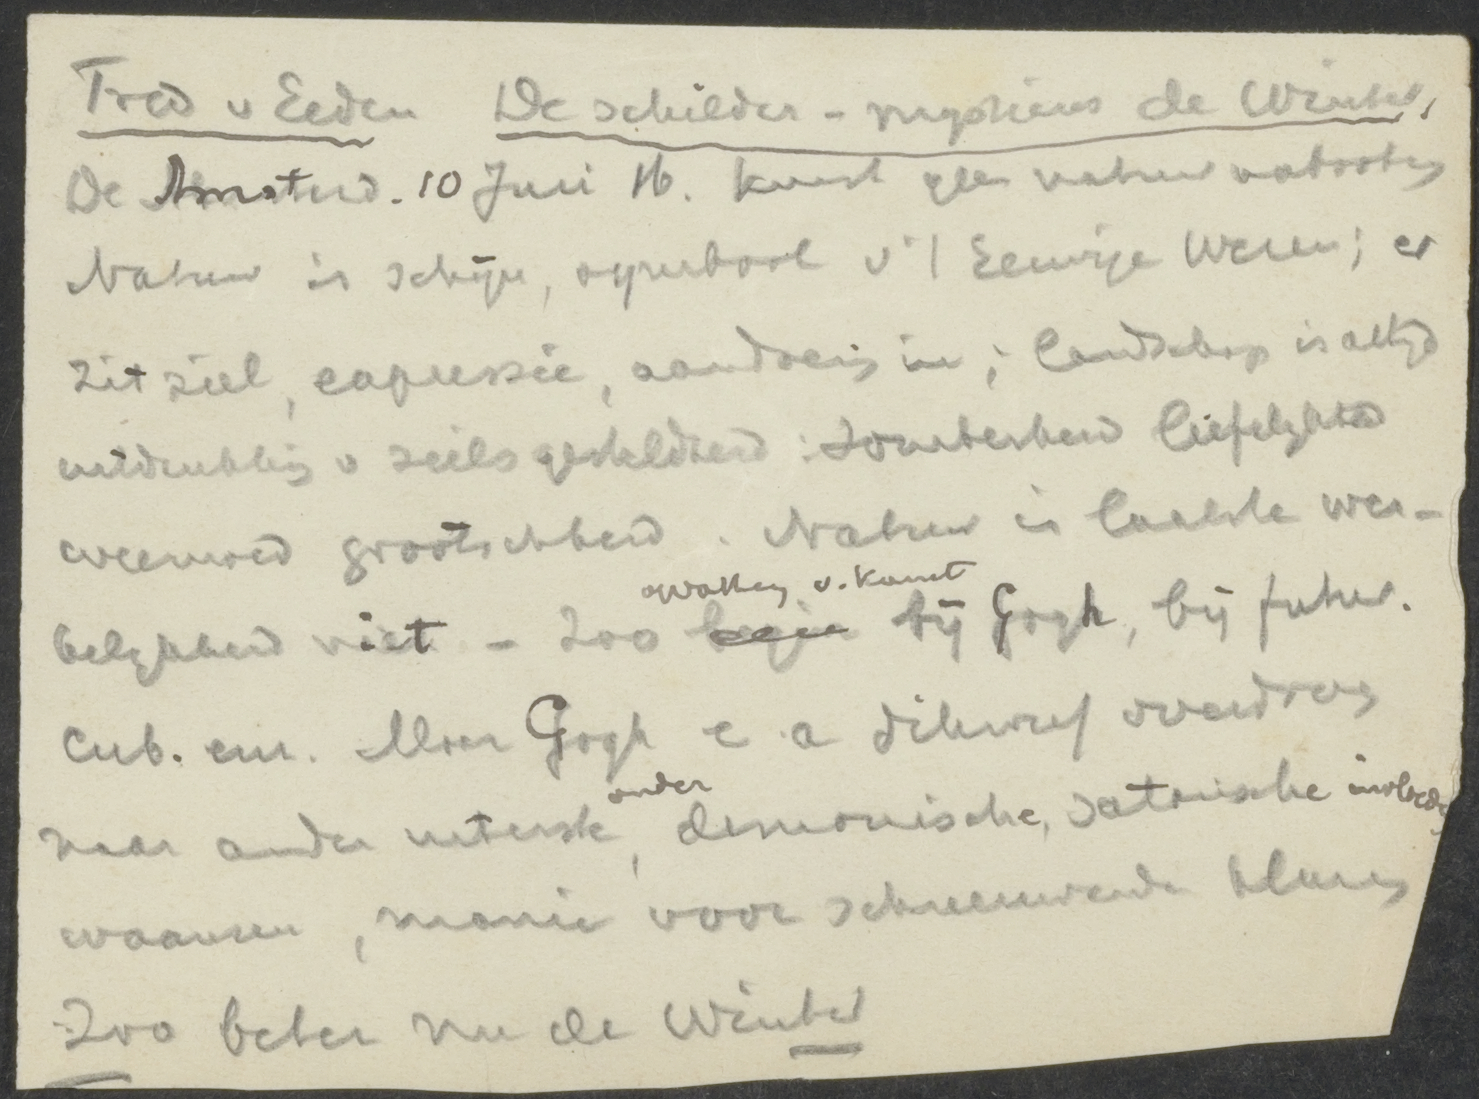 Fred v Eeden De schilder - mysticus de Winter,
De Amsterd. 10 Juni 16. Kunst geen natuur nabootsing
Natuur is schijn, symbool v 't Eeuwige Wezen; er
zit ziel, expressie, aandoening in; landschap is altijd
uitdrukking v zielsgesteldheid: somberheid liefelijkheid
weemoed grootschheid. Natuur is laatste wer-
kelijkheid niet - Zoo
opvatting v. kunst
bij Gogh, bij futur.
cub. enz. Maar Gogh e a dikwerf overdreven
naar ander uiterste, onder demonische, satanische invloeden
waanzin, manie voor schreeuwende kleuren
Zoo beter nu de Winter